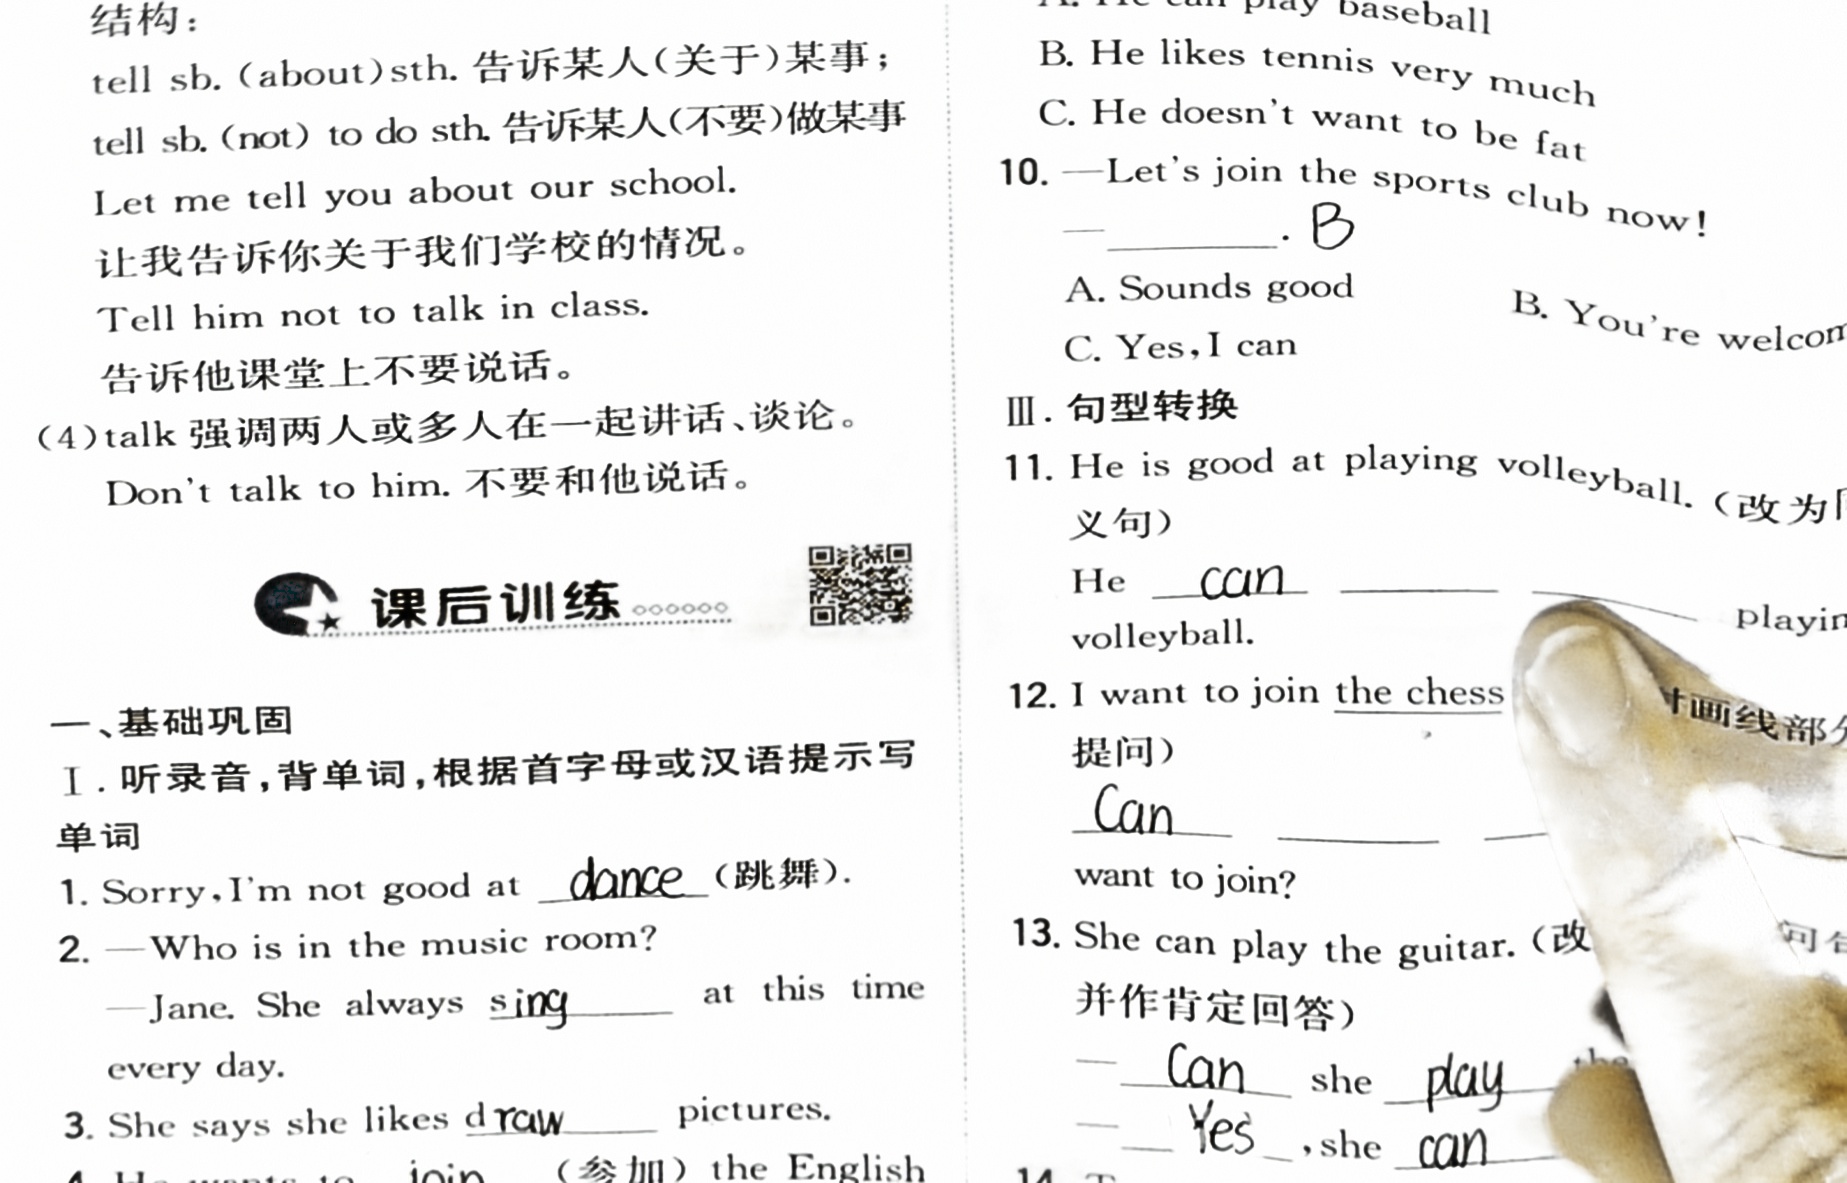 结构：
tell sb. (about)sth. 告诉某人(关于)某事；
tell sb. (not) to do sth. 告诉某人(不要)做某事
Let me tell you about our school.
让我告诉你关于我们学校的情况。
Tell him not to talk in class.
告诉他课堂上不要说话。
(4)talk 强调两人或多人在一起讲话、谈论。
Don't talk to him. 不要和他说话。
课后训练
一、基础巩固
Ⅰ. 听录音,背单词,根据首字母或汉语提示写
单词
1. Sorry, I'm not good at dance (跳舞).
2. —Who is in the music room?
—Jane. She always sing at this time
every day.
3. She says she likes draw pictures.
4. He wants to join (参加) the English
A. He can play baseball
B. He likes tennis very much
C. He doesn't want to be fat
10. —Let's join the sports club now!
— ________. B
A. Sounds good B. You're welcom
C. Yes, I can
Ⅲ. 句型转换
11. He is good at playing volleyball. (改为
义句)
He can ________ ________ playin
volleyball.
12. I want to join the chess 画线部分
提问)
Can ________ ________
want to join?
13. She can play the guitar. (改 句
并作肯定回答)
— Can she play the
— Yes , she can
14.